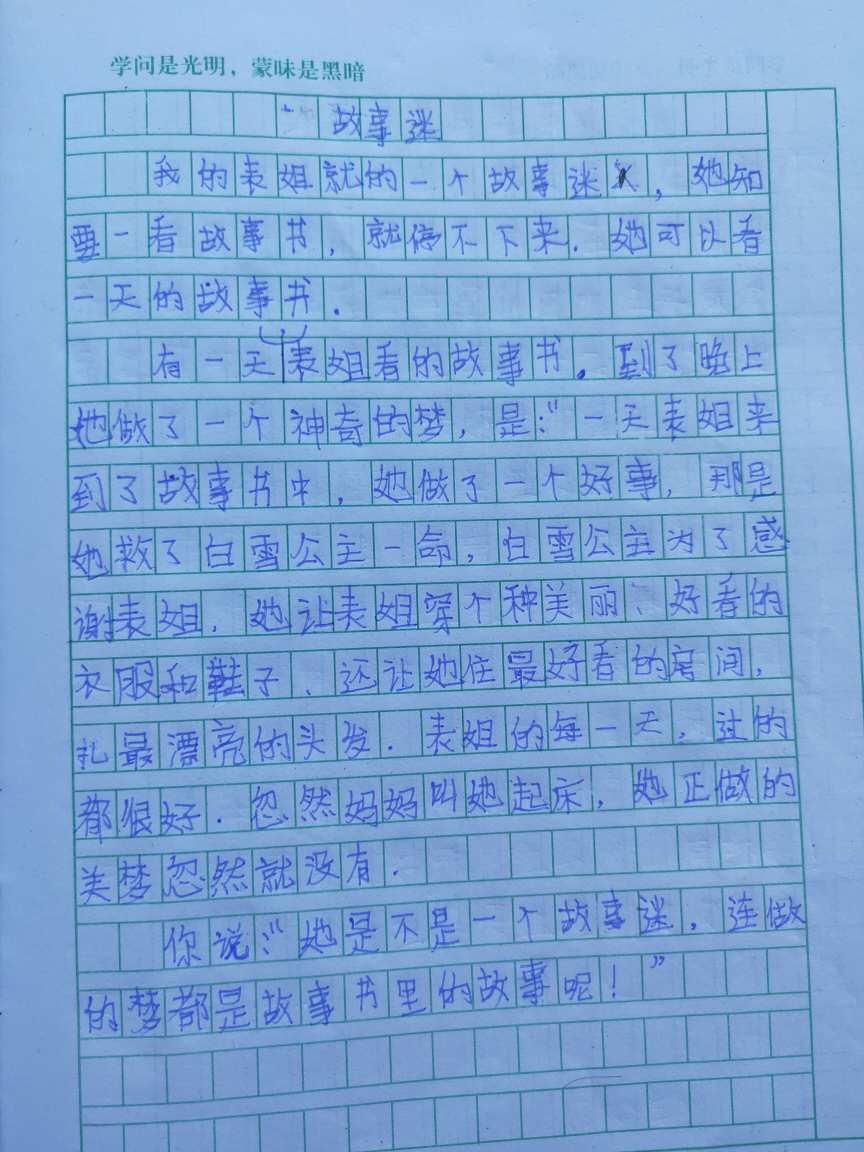 学问是光明，蒙昧是黑暗
故事迷
我的表姐就的一个故事迷，她知
要一看故事书，就停不下来．她可以看
一天的故事书．
有一天表姐看的故事书。到了晚上
她做了一个神奇的梦，是：“一天表姐来
到了故事书中，她做了一个好事，那是
她救了白雪公主一命，白雪公主为了感
谢表姐．她让表姐穿个种美丽、好看的
衣服和鞋子、还让她住最好看的房间，
扎最漂亮的头发．表姐的每一天，过的
都很好．忽然妈妈叫她起床，她正做的
美梦忽然就没有．
你说：“她是不是一个故事迷，连做
的梦都是故事书里的故事呢！”